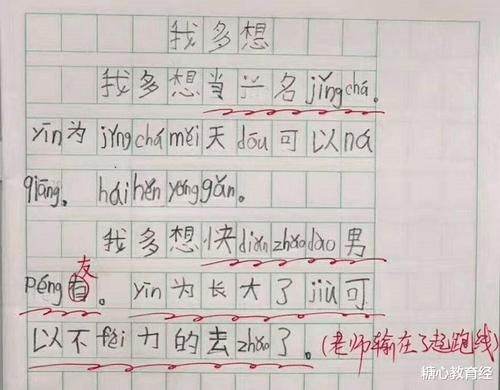 我多想
我多想当兴名jǐngchá。
yīn为jǐngchá měi天dōu可以ná
qiāng。háihěn yǒnggǎn。
我多想快diǎnzhǎodào男
友
péng有。yīn为长大了jiù可
以不fèi力的去zhǎo了。(老师输在了起跑线)
糖心教育经